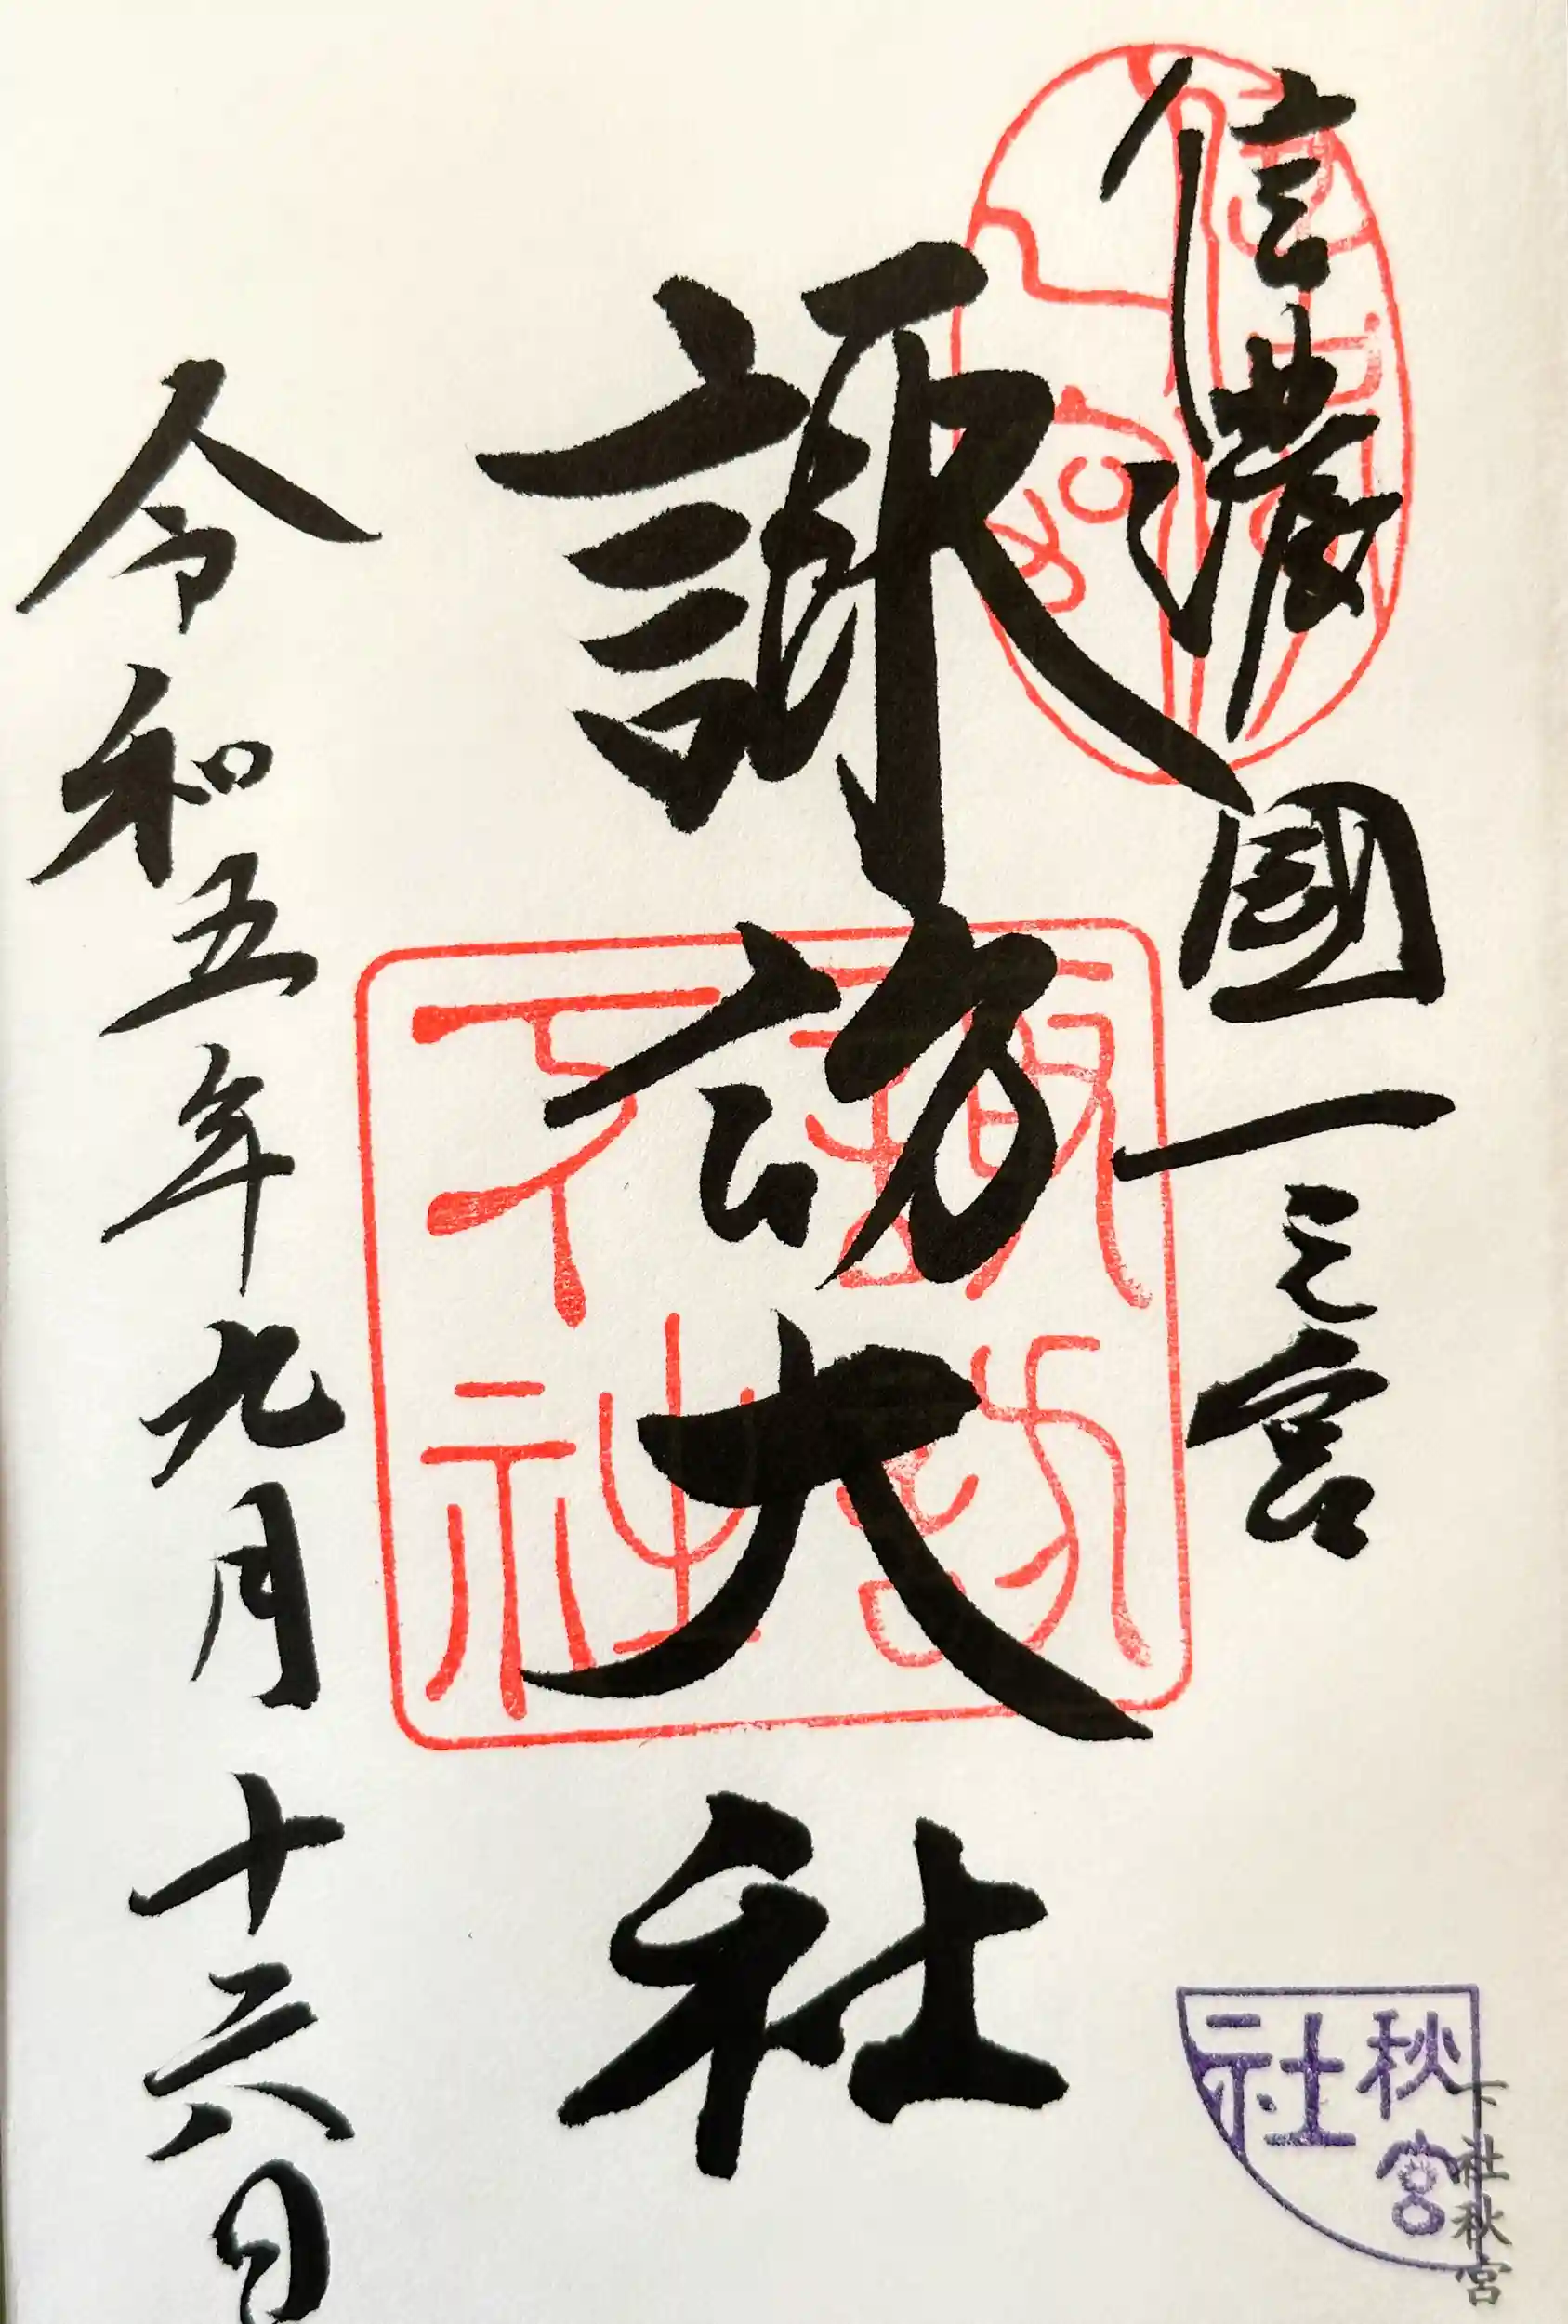 信濃國一之宮
諏訪大社
令和五年九月十六日
諏訪
下社
秋宮
社
下社秋宮